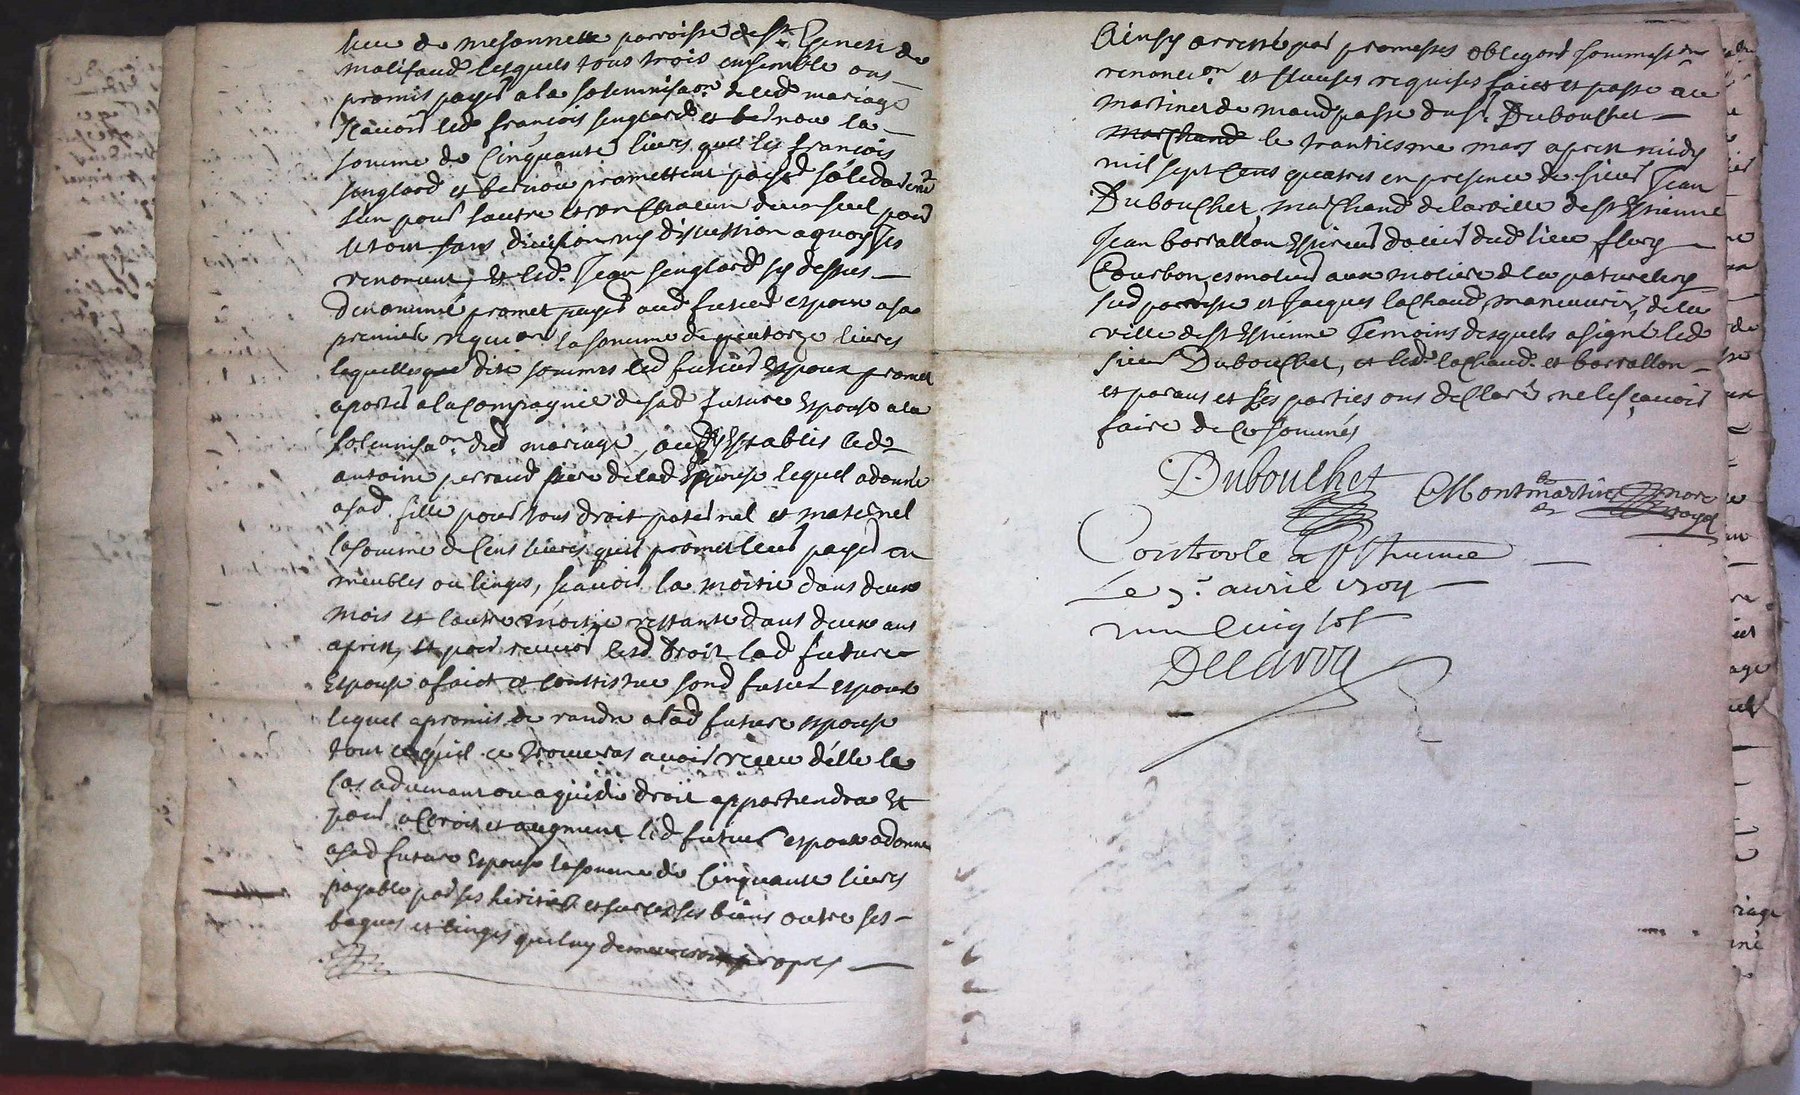 lieu de mesonnette parroisse de St Genest de
malifaud lesquels tous trois ensemble ont
promis payer a la solemnisaon dud mariage
scavoir led francois senglard et bernou la
somme de Cinquante livres que les francois
senglard et bernou promettent payer solidairemt
lun pour lautre et un Chacun deux seul pour
le tout sans division ny discussion a quoy Ils
renoncent, et led. Jean senglard sy dessus
denommé promet payer aud futur espoux a sa
premiere requion la somme de quatorze livres
lesquelles dite sommes led futur Espoux promet
aporter a la Compagnie de sad future Espouse a la
solemnisaon dud mariage, aussy Establis led
antoine perraud pere de lad Espouse lequel a donné
a sad fille pour tous droit paternel et maternel
la somme de Cens livres quil promet leur payer en
meubles ou linges, scavoir la moitie dans deux
mois et lautre moitie restante dans deux ans
apres, Et pour recevoir lesd droit lad future
Espouse a faict et constitue sond futur espoux
lequel a promis de randre a lad future espouse
tout ce quil ce trouveras avoir receu delle le
Cas advenant ou a qui de droit appartiendra Et
pour accroit et augment led futur espoux a donné
a sad future Espouse la somme de Cinquante livres
payable par ses heritiers et sur ses biens outre ses
bagues et linges qui luy demeureront propres
Ainsy arresté par promesses obligaons soumissions
renonciaon et Clauses requises faict et passé au
martinet de maud passe du sr. Dubouchet
marchand le trantiesme mars apres midy
mil sept Cens quatres en presence de sieur Jean
Dubouchet, marchand de la ville de St Estienne
Jean borrallon dud lieu fleury
Courbon, esmoleur aux moliere de la
sud parroisse et Jacques lachaud, maneuvrier, de la
ville de St Estienne Temoins desquels a signé led
sieur Dubouchet, et led lachaud et borrallon
et paraus et les parties ont declaré ne le scavoir
faire de Ce sommés
Dubouchet Montmartin nore royal
Controolé a St Etienne
Le 3e avril 1704
Delaroa